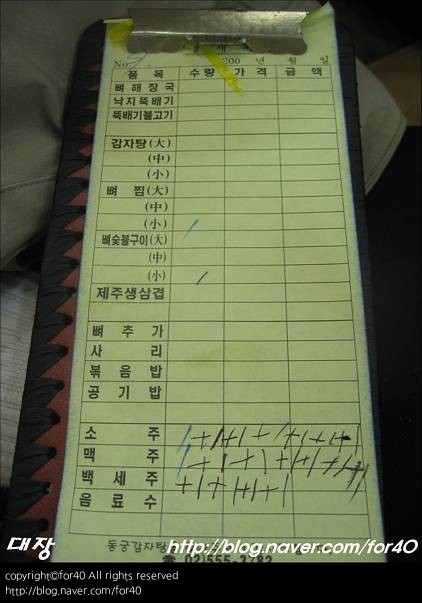 No.
200 년 월 일
품 목 수량 가 격 금 액
뼈해장국
낙지뚝배기
뚝배기불고기
감자탕(大)
(中)
(小)
뼈 찜(大)
(中)
(小)
뼈숯불구이(大)
(中)
(小)
제주생삼겹
뼈 추 가
사 리
볶 음 밥
공 기 밥
소 주
맥 주
백 세 주
음 료 수
동궁감자탕
☎ 02)555-3782
대장 http://blog.naver.com/for40
copyright©for40 All rights reserved
http://blog.naver.com/for40